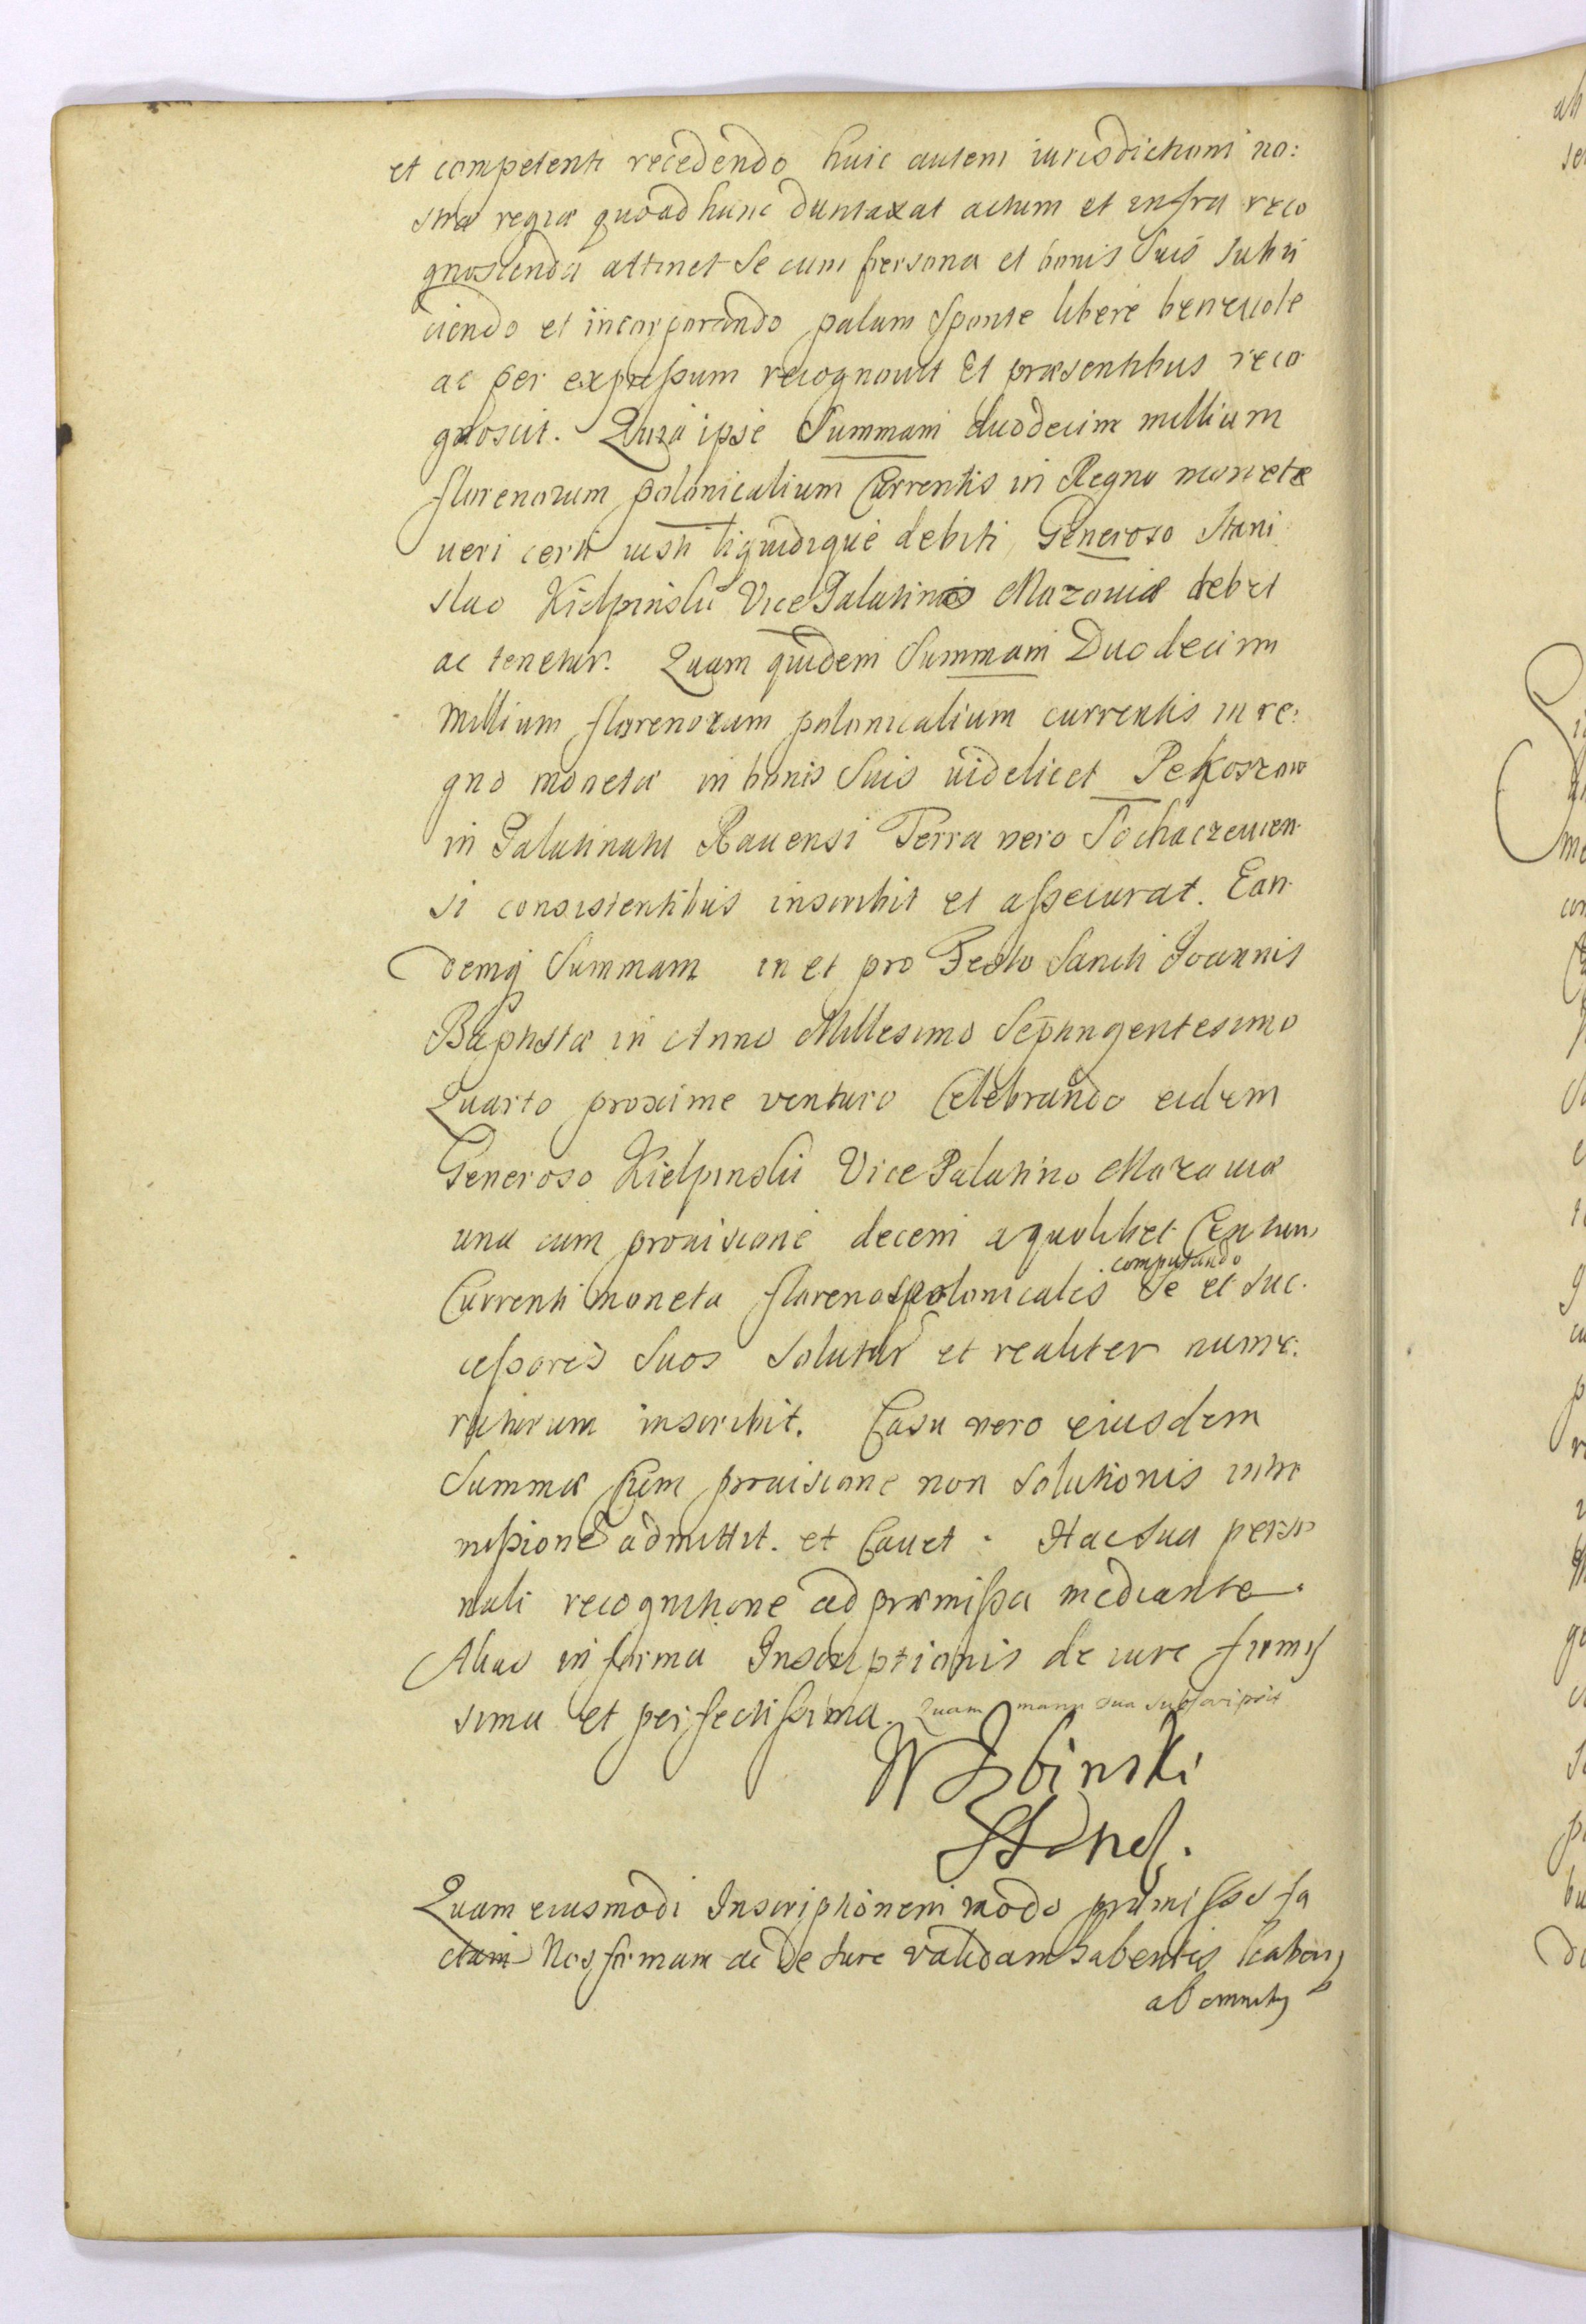 et competenti recedendo huic autem iurisdictioni no:
stræ regiæ quoad hunc duntaxat actum et infra reco
gnoscenda attinet Se cum persona et bonis Suis Subii
ciendo et incorporando palam Sponte libere benevole
ac per expressum recognovit Et præsentibus reco
gnoscit. Quia ipse Summam duodecim millium
florenorum polonicalium Currentis in Regno monetæ
ueri certi iusti liquidique debiti Generoso Stani
slao Kiełpinski Vice Palatino Mazouiæ debet
ac tenetur. Quam quidem Summam Duodecim
Millium florenorum polonicalium currentis in re:
gno monetæ in bonis Suis uidelicet Pekoszow
in Palatinatu Rauensi Terra vero Sochaczeuien
si consistentibus inscribit et assecurat. Ean
demq Summam in et pro Festo Sancti Joannis
Baptistæ in Anno Millesimo Septingentesimo
Quarto proxime venturo Celebrando eidem
Generoso Kiełpinski Vice Palatino Mazouiæ
una cum prouisione decem a quolibet Centum
computando
Currenti moneta florenos polonicales Se et Suc
cessores Suos Soluturum et realiter nume:
raturum inscribit. Casu vero eiusdem
Summæ cum prouisione non Solutionis intro
missione admittit. et Cauet. Hac Sua perso
nali recognitione ad præmissa mediante.
Alias in forma Inscriptionis de iure firmis
sima et perfectissima. Quam manu sua subscripsit
Quam eiusmodi Inscriptionem modo præmisso fa
ctam Nos firmam ac de Jure validam habentes
ab omnibq